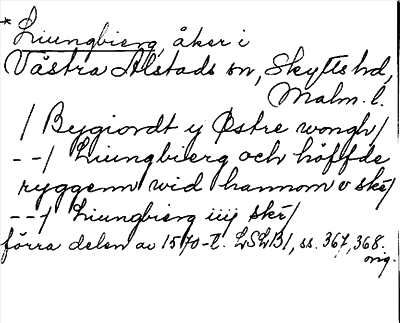 *Liungbierg, åker i
Västra Alstads sn, Skytts hd,
Malm. l.
/ Bygiordt y Østre wongh/
--/ Liungbierg och höffde
ryggenn wid hannom v ske/
--/ Liungbierg iiij ske/
förra delen av 1570-t. LSLB1, ss. 367, 368.
orig.